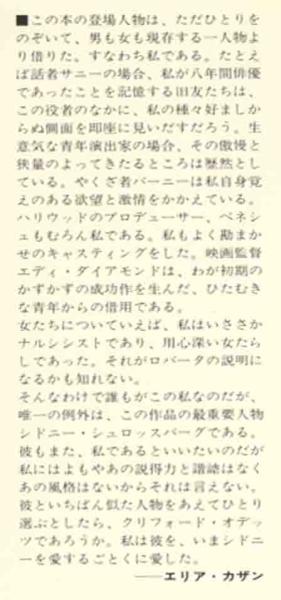 ■この本の登場人物は、ただひとりを
のぞいて、男も女も現存する一人物よ
り借りた。すなわち私である。たとえ
ば話者サニーの場合、私が八年間俳優
であったことを記憶する旧友たちは、
この役者のなかに、私の種々好ましか
らぬ側面を即座に見いだすだろう。生
意気な青年演出家の場合、その傲慢と
狭量のよってきたるところは歴然とし
ている。やくざ者バーニーは私自身覚
えのある欲望と激情をかかえている。
ハリウッドのプロデューサー、ベネシ
ュもむろん私である。私もよく勘まか
せのキャスティングをした。映画監督
エディ・ダイアモンドは、わが初期の
かずかずの成功作を生んだ、ひたむき
な青年からの借用である。
女たちについていえば、私はいささか
ナルシシストであり、用心深い女たら
しであった。それがロバータの説明に
なるかも知れない。
そんなわけで誰もがこの私なのだが、
唯一の例外は、この作品の最重要人物
シドニー・シュロッスバーグである。
彼もまた、私であるといいたいのだが
私にはよもやあの説得力と諧謔はなく
あの風格はないからそれは言えない。
彼といちばん似た人物をあえてひとり
選ぶとしたら、クリフォード・オデッ
ツであろうか。私は彼を、いまシドニ
ーを愛するごとくに愛した。
――エリア・カザン